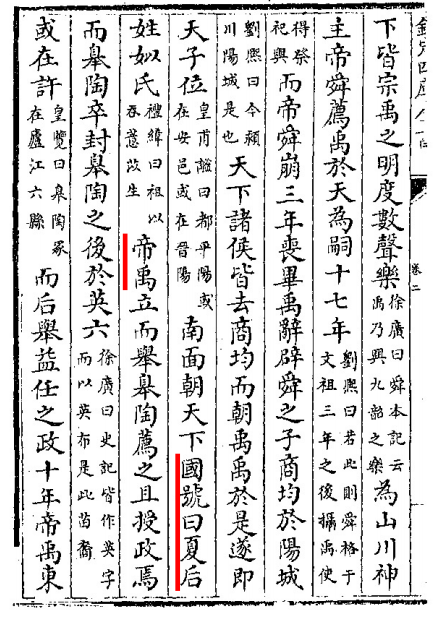 下皆宗禹之明度數聲樂徐廣曰舜本記云禹乃興九韶之樂為山川神
主帝舜薦禹於天為嗣十七年劉熙曰若此則舜格于文祖三年之後攝禹使
得祭祀與而帝舜崩三年喪畢禹辭辟舜之子商均於陽城
劉熙曰今潁川陽城是也天下諸侯皆去商均而朝禹禹於是遂即
天子位皇甫謐曰都平陽或在安邑或在晉陽南面朝天下國號曰夏后
姓姒氏禮緯曰祖以吞薏苡生帝禹立而舉皋陶薦之且授政焉
而皋陶卒封皋陶之後於英六徐廣曰史記皆作英字而以英布是此苗裔
或在許皇覽曰皋陶冢在廬江六縣而后舉益任之政十年帝禹東
卷二